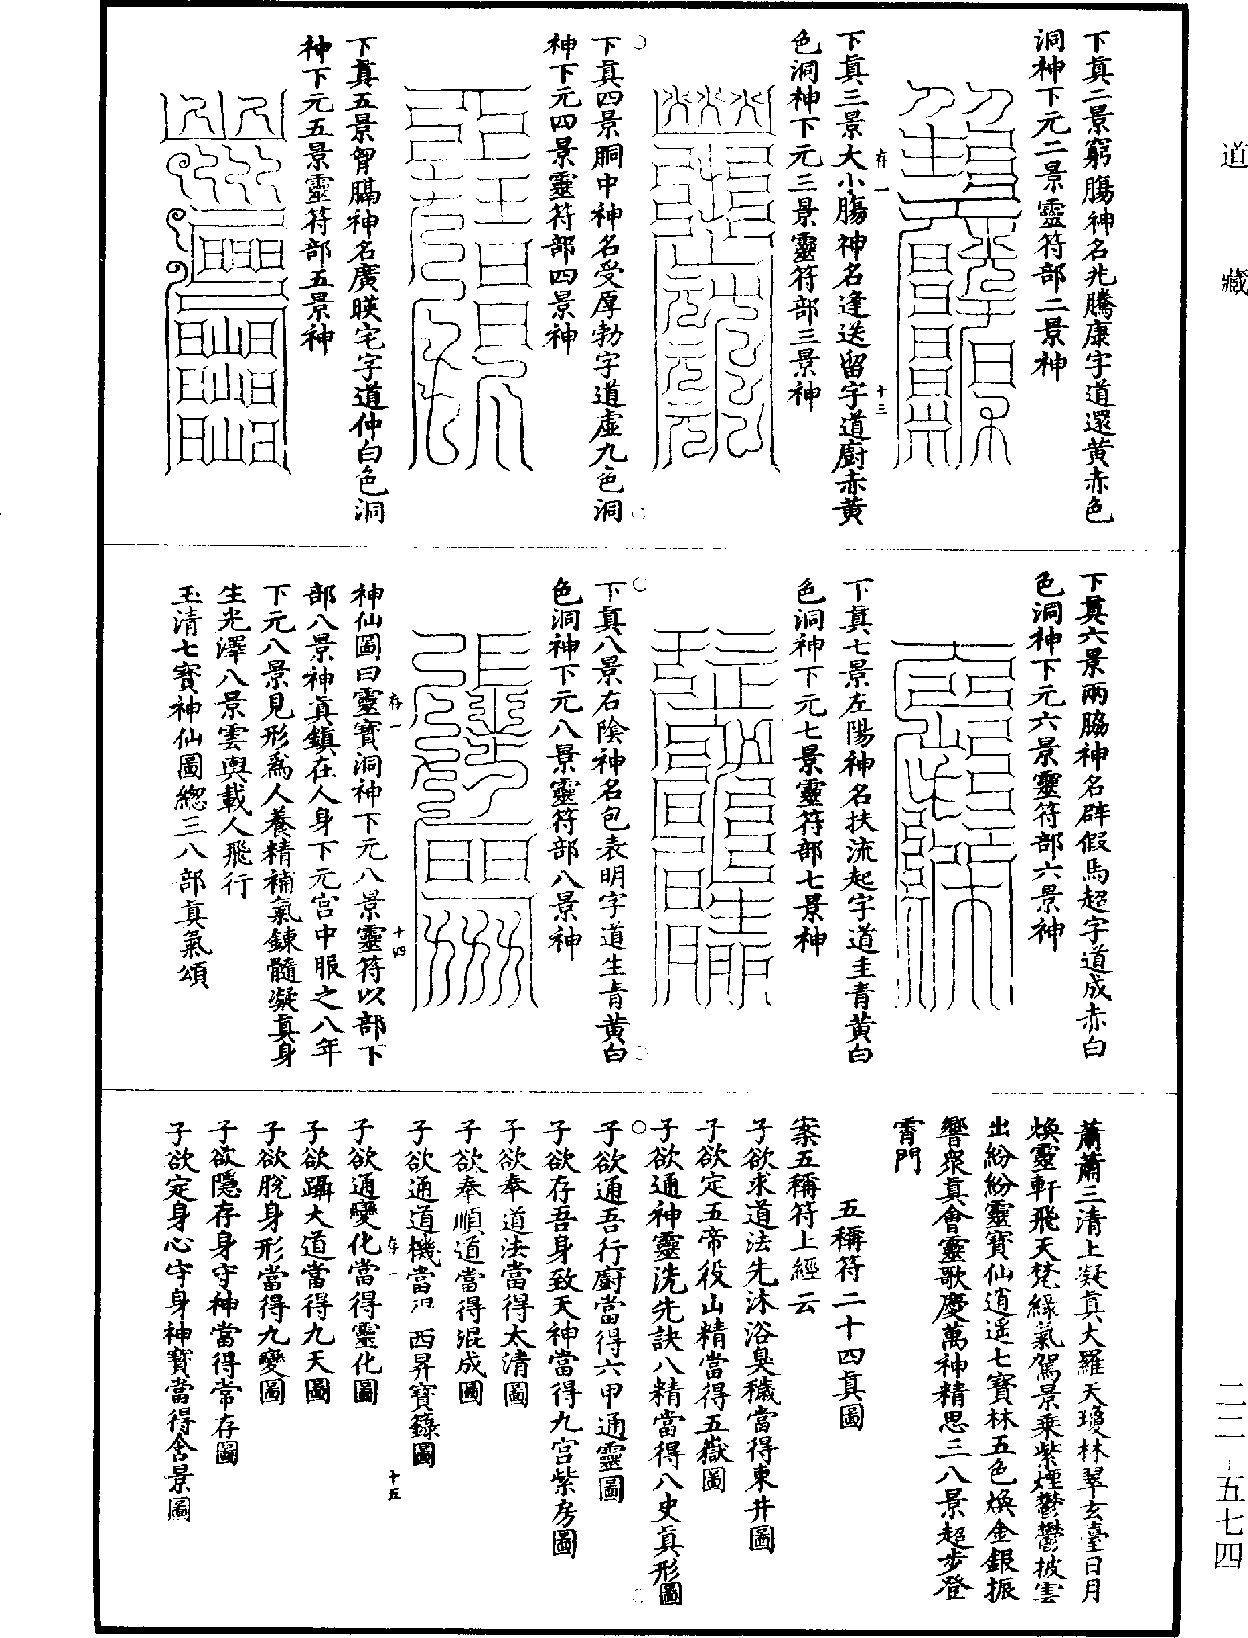 道　藏
下真二景窮膓神名兆騰康字道還黄赤色
洞神下元二景靈符部二景神
下真三景大小膓神名逢送留字道廚赤黄
色洞神下元三景靈符部三景神
下真四景胴中神名受厚勃字道虚九色洞
神下元四景靈符部四景神
下真五景胷膈神名廣瑛宅字道仲白色洞
神下元五景靈符部五景神
下真六景兩脇神名辟假馬超字道成赤白
色洞神下元六景靈符部六景神
下真七景左陽神名扶流起字道圭青黄白
色洞神下元七景靈符部七景神
下真八景右陰神名包表明字道生青黄白
色洞神下元八景靈符部八景神
神仙圖曰靈寳洞神下元八景靈符以部下
部八景神真鎮在人身下元宫中服之八年
下元八景見形爲人養精補氣鍊髓凝真身
生光澤八景雲輿載人飛行
玉清七寳神仙圖總三八部真氣頌
蕭蕭三清上凝真大羅天瓊林翠玄臺日月
煥靈軒飛天梵緑氣駕景乗紫煙鬱鬱披雲
出紛紛靈寳仙逍遥七寳林五色煥金銀振
響衆真會靈歌慶萬神精思三八景超步登
霄門
五稱符二十四真圖
案五稱符上經云
子欲求道法先沐浴臭穢當得東井圖
子欲定五帝役山精當得五嶽圖
子欲通神靈洗先訣八精當得八史真形圖
子欲通吾行廚當得六甲通靈圖
子欲存吾身致天神當得九宫紫房圖
子欲奉道法當得太清圖
子欲奉順道當得混成圖
子欲通道機當得西昇寳籙圖
子欲通變化當得靈化圖
子欲躡大道當得九天圖
子欲脱身形當得九變圖
子欲隱存身守神當得常存圖
子欲定身心守身神寳當得含景圖
存一
十三
存一
十四
存一
十五
二二-五七四